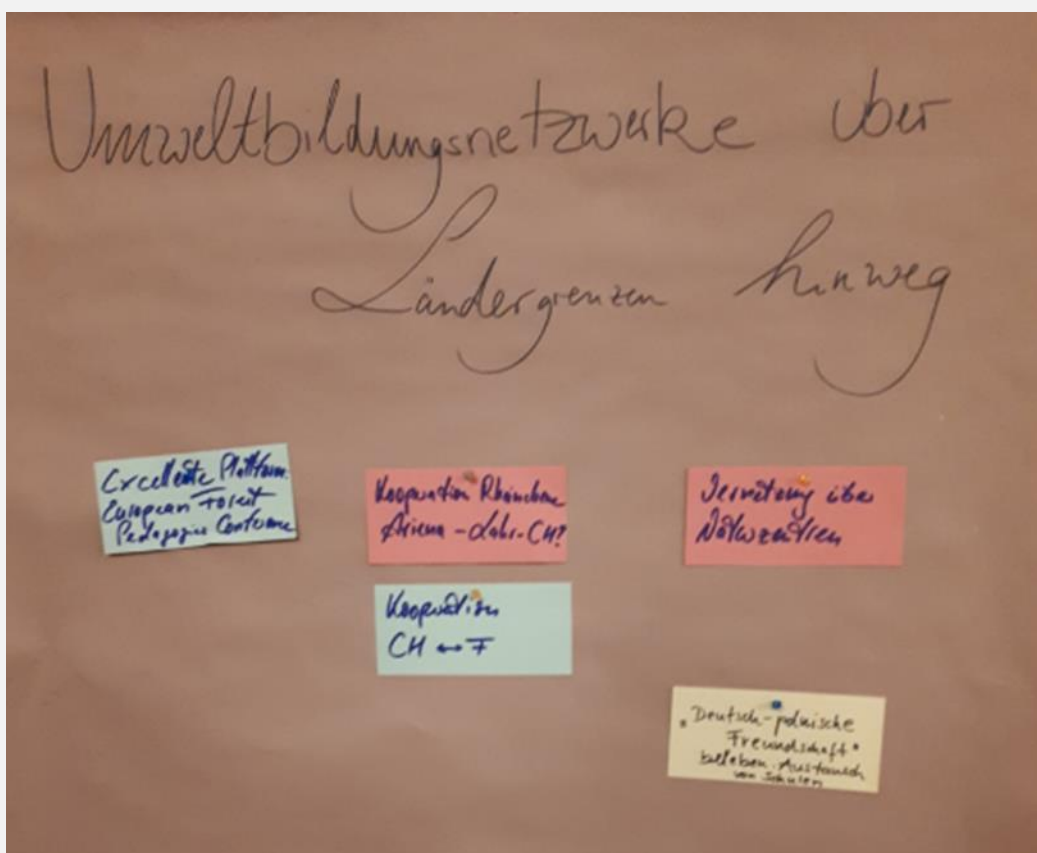 Umweltbildungsnetzwerke über
Ländergrenzen hinweg
Excellente Plattform
European Forest
Pedagogics Conference
Kooperation Rheinebene
Ariena - Lahr - CH?
Kooperation
CH ↔ F
Vernetzung über
Naturzentren
"Deutsch-polnische
Freundschaft"
beleben. Austausch
von Schulen